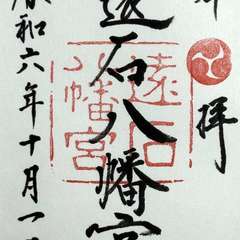 奉拝
遠石八幡宮
遠石八幡宮
令和六年十月一日